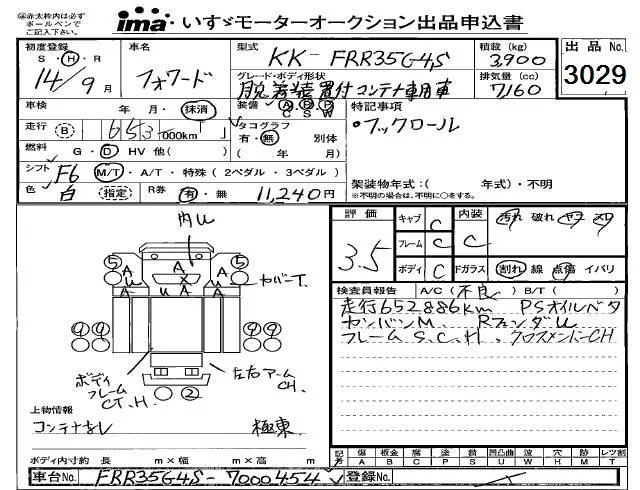 ㊟赤太枠内は必ず
ボールペンで
ご記入下さい。
ima・いすゞモーターオークション出品申込書
初度登録 車名 型式 KK-FRR35G4S 積載(kg) 3,900 出品No.
S・H・R 14年9月 フォワード グレード・ボディ形状 脱着装置付コンテナ専用車 排気量(cc) 7,160 3029
車検 年・月・抹消 装備 A P P C S W 特記事項
走行 B 653,000km タコグラフ 有・無 別体 (年/月) ・フックロール
燃料 G・D HV 他( )
シフト F6 M/T・A/T・特殊(2ペダル・3ペダル) 架装物年式:( 年式)・不明
色 白 指定 R券 有・無 11,240円 ※不明の場合は、不明に○をする。
内U
評価 3.5 キャブ C 内装 C 汚れ 破れ
フレーム C
5 A A A 5 カバーT.
U A A U
ボディ C Fガラス 割れ 線 点傷 イバリ
検査員報告 A/C(不良) B/T( )
走行652886km PSオイルベタ
カンバンM. RフェンダU
フレームS.C.H. クロスメンバーCH
9 9 9 9
ボディ
フレーム
CT.H.
左右アーム
CH.
2
上物情報
コンテナなし 極東
ボディ内寸約 長 m×幅 m×高 m
記号 傷 A 板金 B 腐 C 塗 P 錆 S 凹凸曲 U 波 W 穴 H 跡 M 補 T レツ割
車台No. FRR35G4S-7000454 登録No.